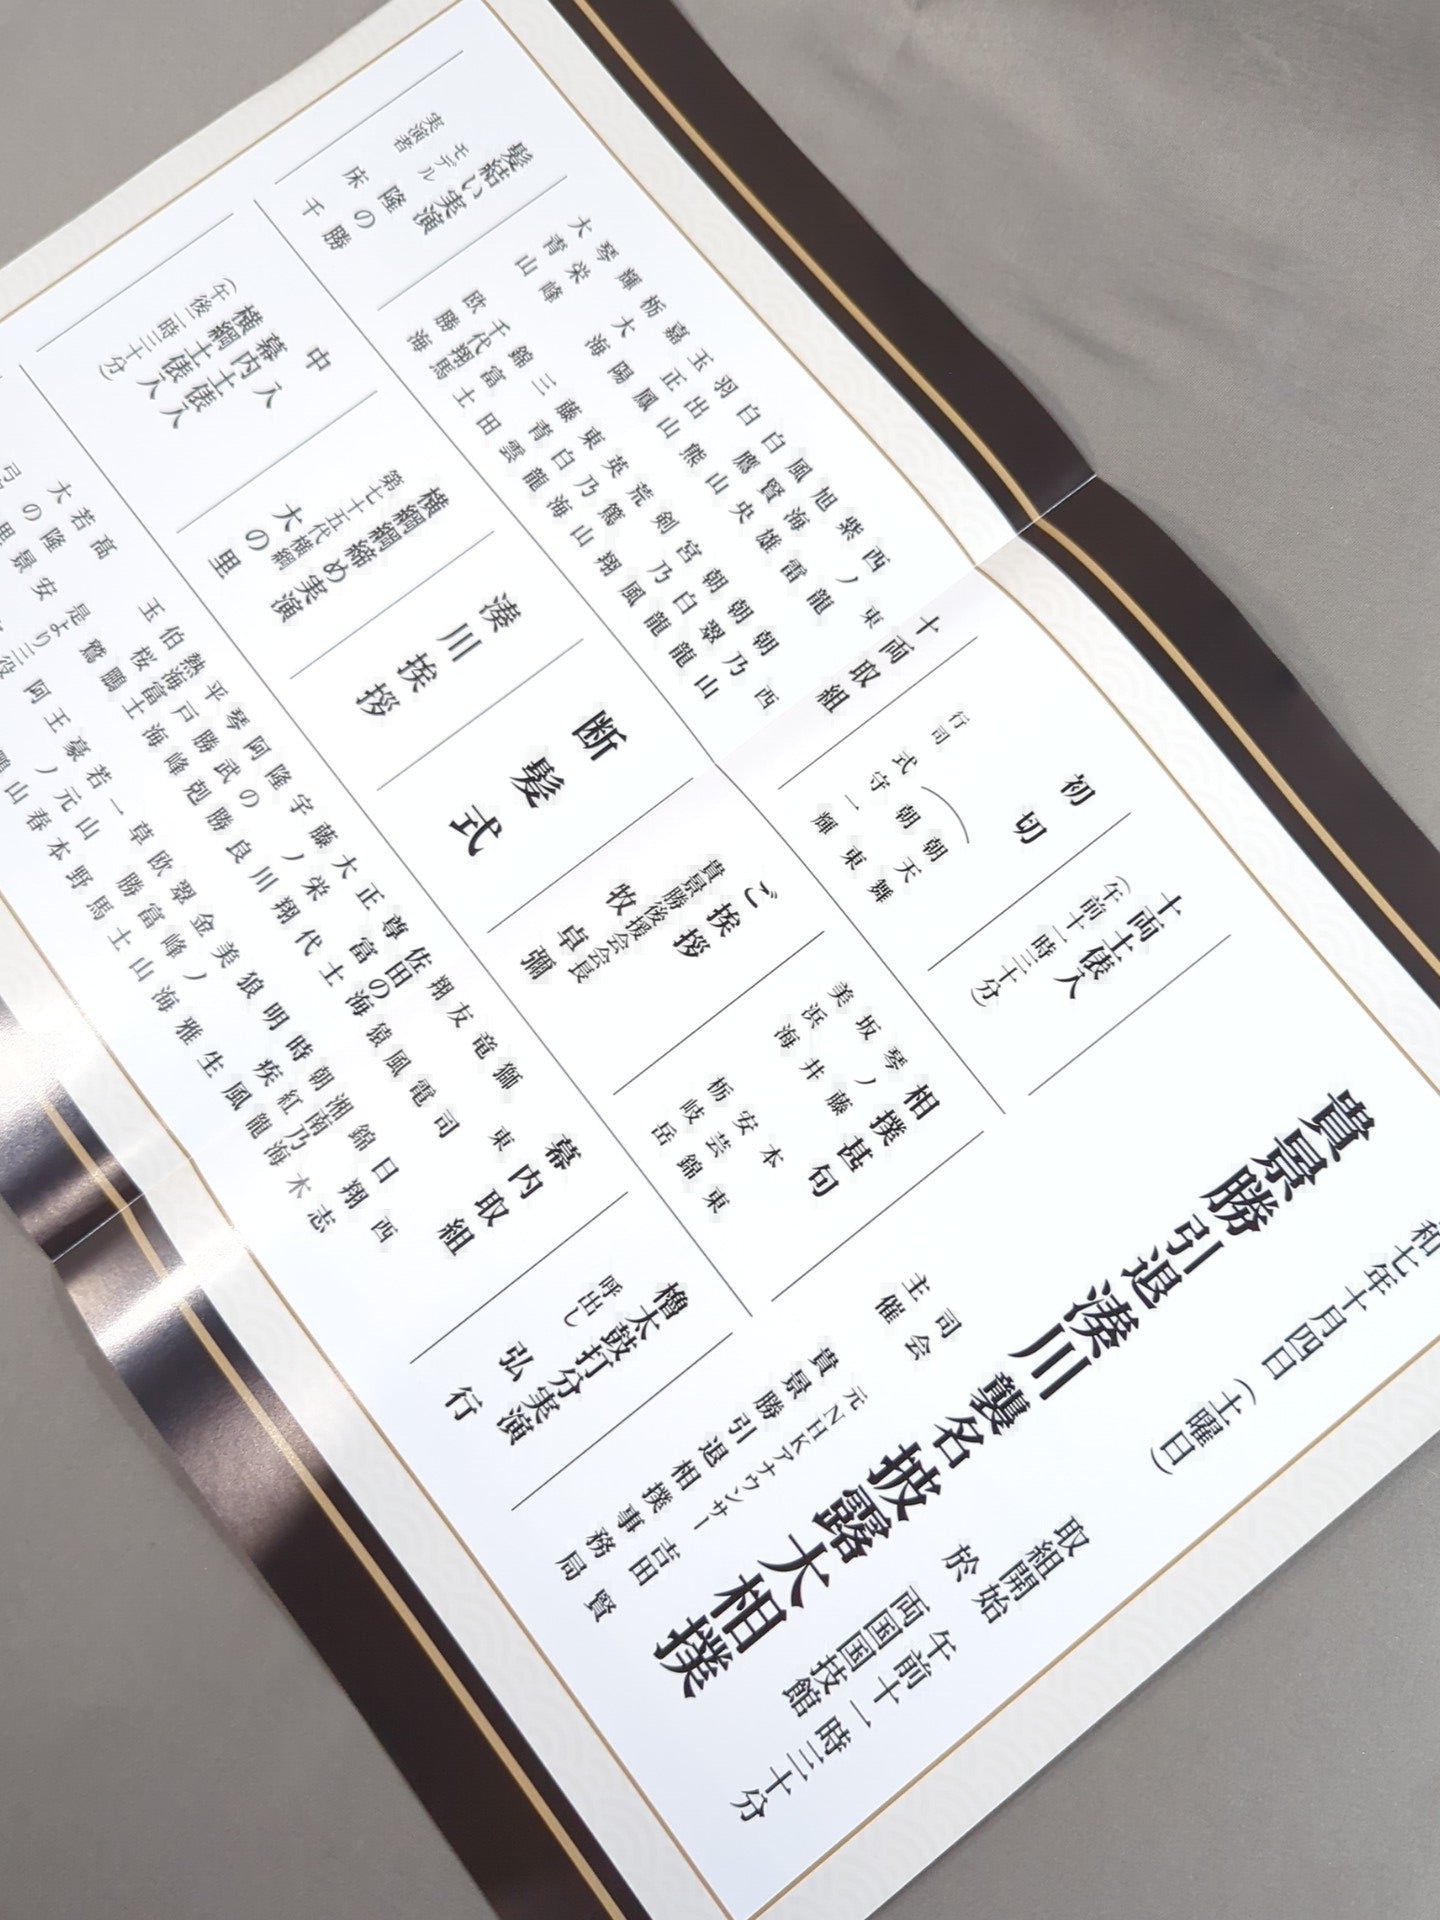 和七年十月四日(土曜日)
取組開始 午前十一時三十分
於 両国国技館
貴景勝引退湊川襲名披露大相撲
司会 元NHKアナウンサー 吉田賢
主催 貴景勝引退相撲事務局
十両土俵入
(午前十一時三十分)
初切
朝天舞
朝東
行司 式守一輝
十両取組
東 西
西ノ龍 朝乃山
紫雷 朝翠龍
旭海雄 朝白龍
風賢央 宮乃風
白鷹山 剣翔
白熊 荒篤山
羽出山 英乃海
玉正鳳 東白龍
嘉陽 藤青雲
栃大海 三田
輝 錦富士
琴栄峰 千代翔馬
大青山 欧勝海
髪結い実演
モデル 隆の勝
実演者 床千
相撲甚句
琴ノ藤 本東
坂井 安芸錦
美浜海 栃岐岳
ご挨拶
貴景勝後援会会長
牧卓彌
断髪式
湊川挨拶
横綱綱締め実演
第七十五代横綱
大の里
中入
幕内土俵入
横綱土俵入
櫓太鼓打分実演
呼出し 弘行
幕内取組
東 西
獅司 日翔志
竜電 錦木
友風 湘南乃海
翔猿 朝紅龍
佐田の海 時疾風
尊富士 明生
正代 狼雅
大栄翔 美ノ海
藤ノ川 金峰山
宇良 翠富士
隆の勝 欧勝馬
阿武剋 草野
琴勝峰 一山本
平戸海 若元春
熱海富士 豪ノ山
伯桜鵬 王鵬
玉鷲 阿
是より三役
高安
若隆景
大の里